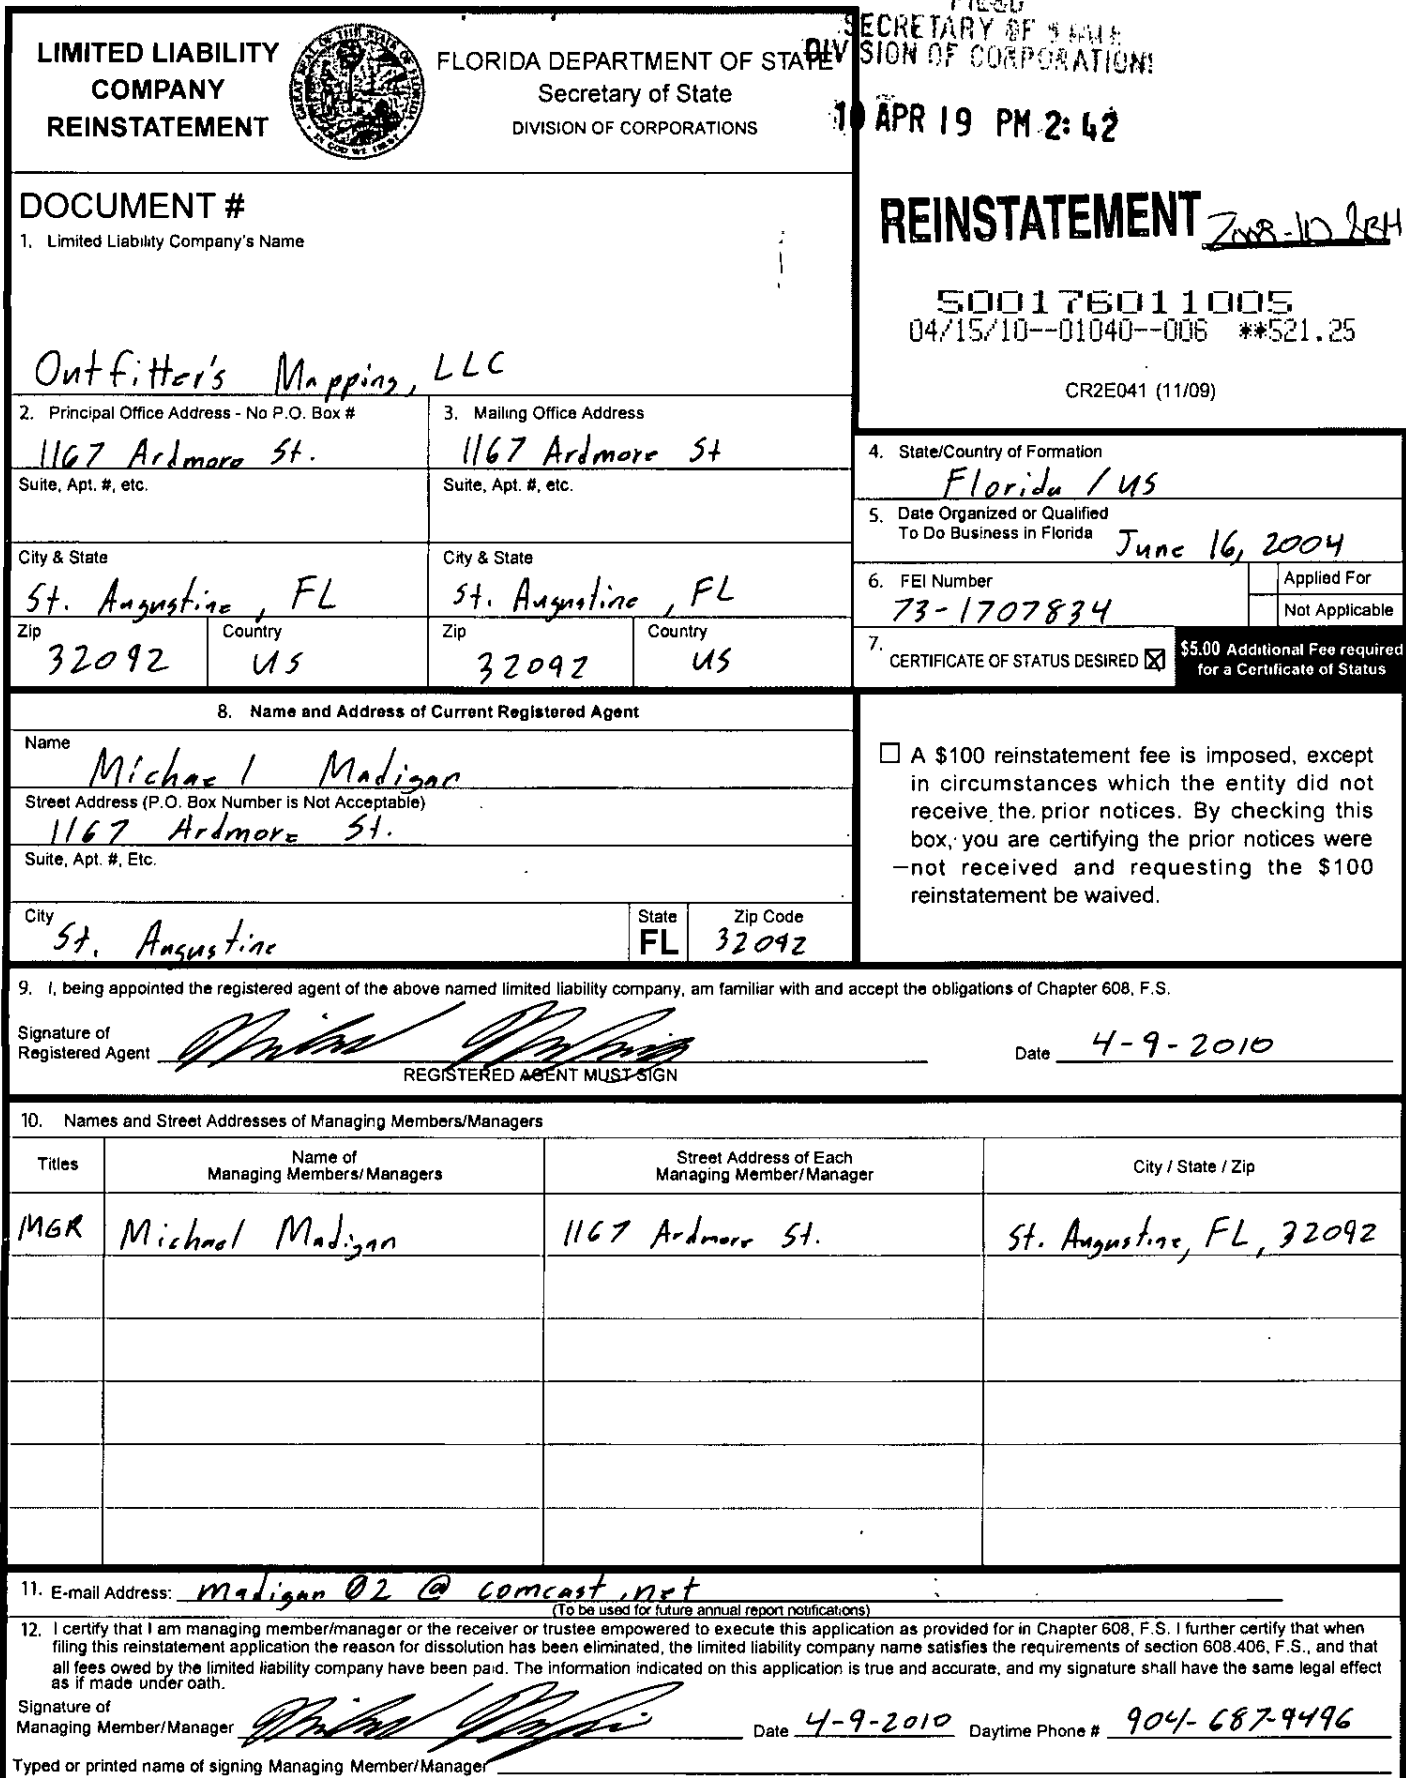 LIMITED LIABILITY
COMPANY
REINSTATEMENT
FLORIDA DEPARTMENT OF STATE
Secretary of State
DIVISION OF CORPORATIONS
FILED
SECRETARY OF STATE
DIVISION OF CORPORATIONS
10 APR 19 PM 2:42
REINSTATEMENT 2008-10
500176011005
04/15/10--01040--006 **521.25
CR2E041 (11/09)
DOCUMENT #
1. Limited Liability Company's Name
Outfitter's Mapping, LLC
2. Principal Office Address - No P.O. Box #
1167 Ardmore St.
Suite, Apt. #, etc.
City & State
St. Augustine, FL
Zip
32092
Country
US
3. Mailing Office Address
1167 Ardmore St
Suite, Apt. #, etc.
City & State
St. Augustine, FL
Zip
32092
Country
US
4. State/Country of Formation
Florida / US
5. Date Organized or Qualified
To Do Business in Florida June 16, 2004
6. FEI Number
73-1707834
Applied For
Not Applicable
7. CERTIFICATE OF STATUS DESIRED ☒
$5.00 Additional Fee required
for a Certificate of Status
8. Name and Address of Current Registered Agent
Name
Michael Madigan
Street Address (P.O. Box Number is Not Acceptable)
1167 Ardmore St.
Suite, Apt. #, Etc.
City
St. Augustine
State
FL
Zip Code
32092
☐ A $100 reinstatement fee is imposed, except
in circumstances which the entity did not
receive the prior notices. By checking this
box, you are certifying the prior notices were
not received and requesting the $100
reinstatement be waived.
9. I, being appointed the registered agent of the above named limited liability company, am familiar with and accept the obligations of Chapter 608, F.S.
Signature of
Registered Agent
REGISTERED AGENT MUST SIGN
Date 4-9-2010
10. Names and Street Addresses of Managing Members/Managers
Titles
Name of
Managing Members/Managers
Street Address of Each
Managing Member/Manager
City / State / Zip
MGR Michael Madigan 1167 Ardmore St. St. Augustine, FL, 32092
11. E-mail Address: madigan02@comcast.net
(To be used for future annual report notifications)
12. I certify that I am managing member/manager or the receiver or trustee empowered to execute this application as provided for in Chapter 608, F.S. I further certify that when
filing this reinstatement application the reason for dissolution has been eliminated, the limited liability company name satisfies the requirements of section 608.406, F.S., and that
all fees owed by the limited liability company have been paid. The information indicated on this application is true and accurate, and my signature shall have the same legal effect
as if made under oath.
Signature of
Managing Member/Manager
Date 4-9-2010 Daytime Phone # 904-687-9496
Typed or printed name of signing Managing Member/Manager